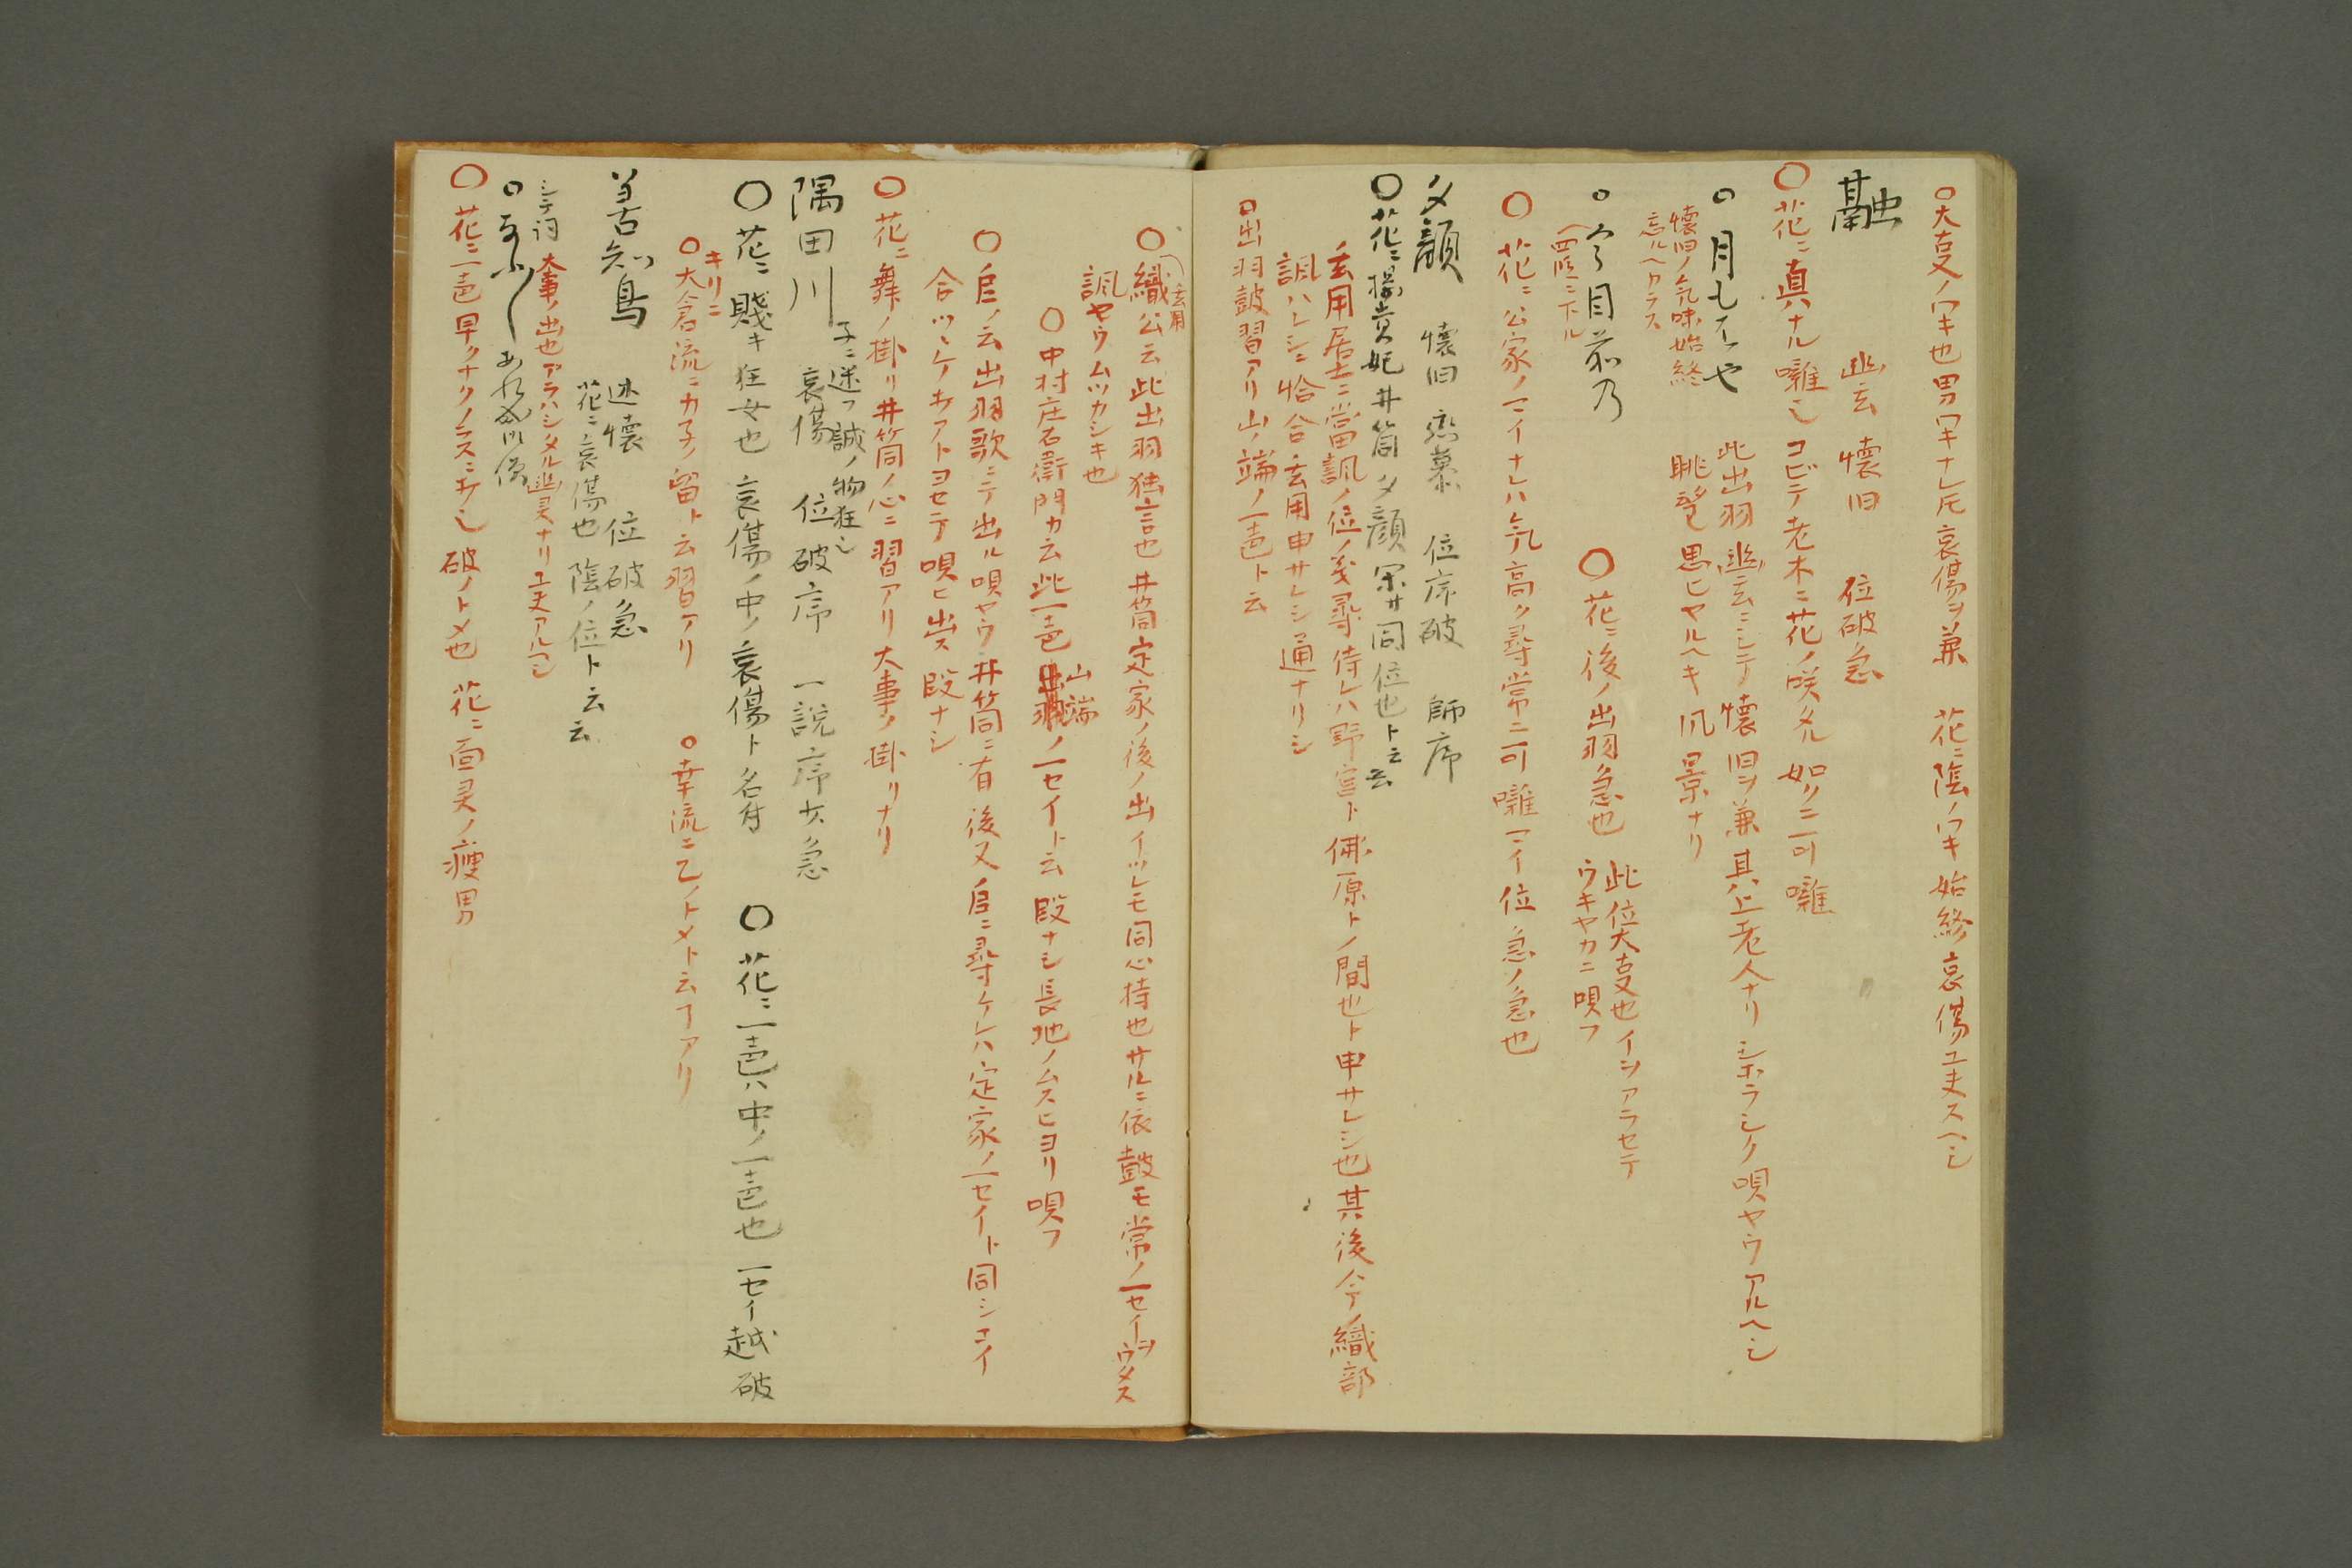 ○大事ノワキ也男ワキナレ𪜈哀傷ヲ兼　花ニ陰ノワキ始終哀傷工夫スヘシ
融　幽玄　懐旧　位破ノ急
○花ニ真ナル囃シ　コビテ老木ニ花ノ咲タル如クニ可囃
○月もはや　此出羽幽玄ニシテ懐旧ヲ兼其上老人ナリシホラシク唄ヤウアルヘシ
眺望ヲ思ヒヤルヘキ風景ナリ
懐旧ノ気味始終
忘ルヘカラス
○今目前乃　○花ニ後ノ出羽急也　此位大事也イソアラセテ
ウキヤカニ唄フ
○花ニ公家ノマイナレハ気高ク尋常ニ可囃マイ位急ノ急也
夕顔　懐旧　恋慕　位序破　師序
○花ニ楊貴妃井筒夕顔采女同位也ト云云
玄用居士ニ當諷ノ位ノ義尋侍レハ野宮ト佛原トノ間也ト申サレシ也其後今ノ織部
諷ハレシニ恰合玄用申サレシ通ナリシ
○出羽鼓習アリ山ノ端ノ一声ト云
玄用
○織公云此出羽独言也井筒定家ノ後ノ出イツレモ同心持也サルニ依鼓モ常ノ一セイヲウタス
諷ヤウムツカシキ也
○中村庄右衛門カ云此一声山端ノ一セイト云　段ナシ長地ノムスヒヨリ唄フ
○自ノ云出羽歌ニテ出ル唄ヤウ井筒ニ有後又自ニ尋ケレハ定家ノ一セイト同シコイ
合ツヽケノホアトヨセテ唄ヒ出ス　段ナシ
○花ニ舞ノ掛リ井筒ノ心ニ習アリ大事ノ掛リナリ
隅田川　哀傷　位破序　一説序
子ニ迷フ誠ノ物狂シ
○花ニ賤キ狂女也　哀傷ノ中ノ哀傷ト名付　○花ニ一声ハ中ノ一声也　一セイ越破
キリニ
○大倉流ニカ子ノ留ト云習アリ　○幸流ニ乙ノトメト云フアリ
善知鳥　述懐　位破ノ急
花ニ哀傷也　陰ノ位ト云云
シテ詞　大事ノ出也アラハシタル幽灵ナリ工夫アルヘシ
○花ニ一声早クナクノラスニ打シ　破ノトメ也　花ニ面灵ノ痩男